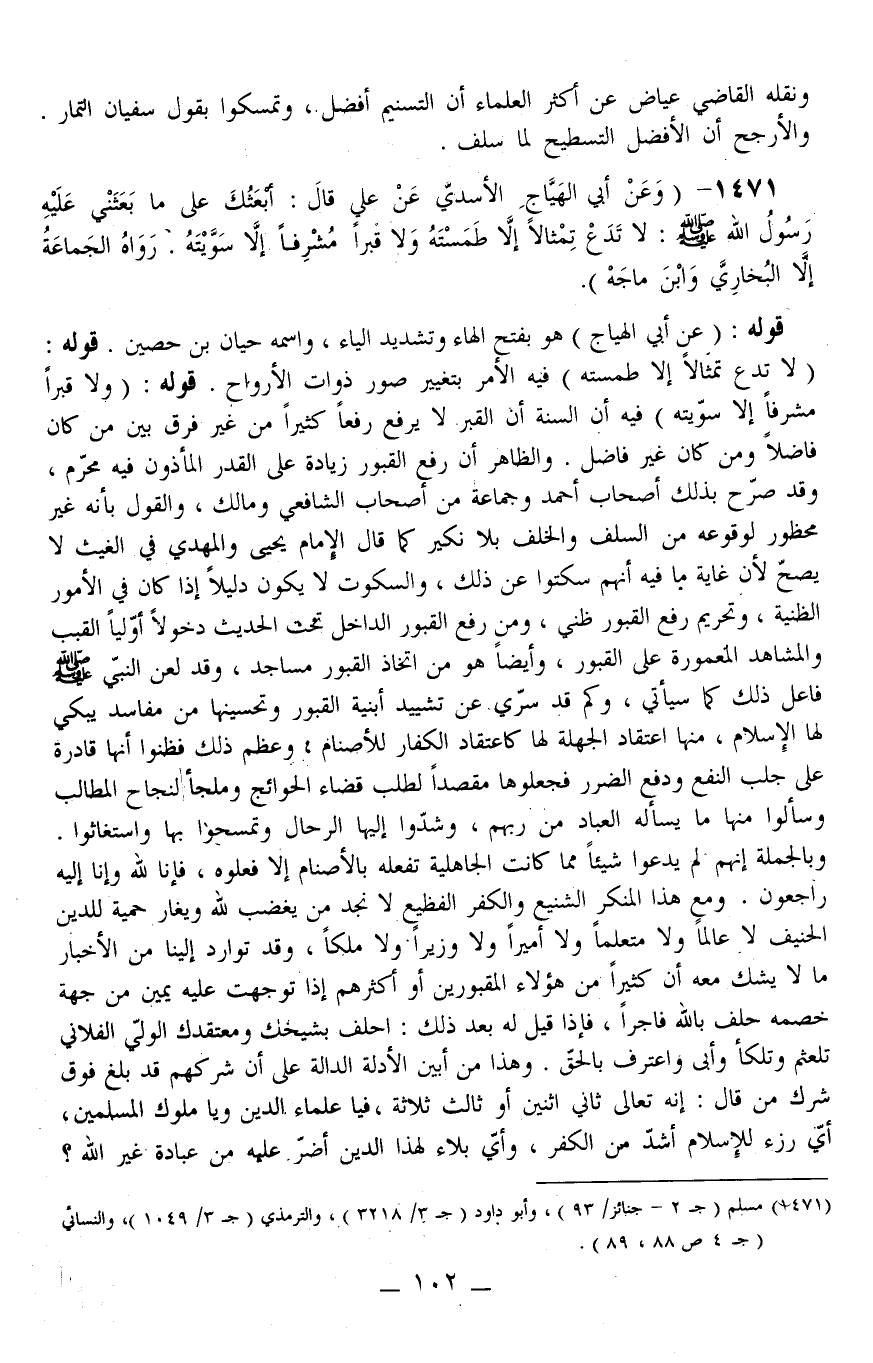 ونقله القاضي عياض عن أكثر العلماء أن التسنيم أفضل ، وتمسكوا بقول سفيان التمار .
والأرجح أن الأفضل التسطيح لما سلف .
١٤٧١- ( وَعَنْ أبي الهَيَّاجِ الأسديّ عَنْ علي قالَ : أبْعَثُكَ على ما بَعَثَنْي عَلَيْهِ
رَسُولُ الله ﷺ : لا تَدَعْ تِمْثالاً إلَّا طَمَسْتَهُ وَلا قبراً مُشْرِفاً إلَّا سَوَّيْتَهُ . رَوَاهُ الجَماعَةُ
إلَّا البُخارِيَّ وَابْنَ ماجَهْ ).
قوله : ( عن أبي الهياج ) هو بفتح الهاء وتشديد الياء ، واسمه حيان بن حصين . قوله :
( لا تدع تمثالاً إلا طمسته ) فيه الأمر بتغيير صور ذوات الأرواح . قوله : ( ولا قبراً
مشرفاً إلا سوّيته ) فيه أن السنة أن القبر لا يرفع رفعاً كثيراً من غير فرق بين من كان
فاضلاً ومن كان غير فاضل . والظاهر أن رفع القبور زيادة على القدر المأذون فيه محرّم ،
وقد صرّح بذلك أصحاب أحمد وجماعة من أصحاب الشافعي ومالك ، والقول بأنه غير
محظور لوقوعه من السلف والخلف بلا نكير كما قال الإمام يحيى والمهدي في الغيث لا
يصحّ لأن غاية ما فيه أنهم سكتوا عن ذلك ، والسكوت لا يكون دليلاً إذا كان في الأمور
الظنية ، وتحريم رفع القبور ظني ، ومن رفع القبور الداخل تحت الحديث دخولاً أوّلياً القبب
والمشاهد المعمورة على القبور ، وأيضاً هو من اتخاذ القبور مساجد ، وقد لعن النبيّ ﷺ
فاعل ذلك كما سيأتي ، وكم قد سرّي عن تشييد أبنية القبور وتحسينها من مفاسد يبكي
لها الإسلام ، منها اعتقاد الجهلة لها كاعتقاد الكفار للأصنام ؛ وعظم ذلك فظنوا أنها قادرة
على جلب النفع ودفع الضرر فجعلوها مقصداً لطلب قضاء الحوائج وملجأ لنجاح المطالب
وسألوا منها ما يسأله العباد من ربهم ، وشدّوا إليها الرحال وتمسحوا بها واستغاثوا .
وبالجملة إنهم لم يدعوا شيئاً مما كانت الجاهلية تفعله بالأصنام إلا فعلوه ، فإنا لله وإنا إليه
راجعون . ومع هذا المنكر الشنيع والكفر الفظيع لا نجد من يغضب لله ويغار حمية للدين
الحنيف لا عالماً ولا متعلماً ولا أميراً ولا وزيراً ولا ملكاً ، وقد توارد إلينا من الأخبار
ما لا يشك معه أن كثيراً من هؤلاء المقبورين أو أكثرهم إذا توجهت عليه يمين من جهة
خصمه حلف بالله فاجراً ، فإذا قيل له بعد ذلك : احلف بشيخك ومعتقدك الوليّ الفلاني
تلعثم وتلكأ وأبى واعترف بالحقّ . وهذا من أبين الأدلة الدالة على أن شركهم قد بلغ فوق
شرك من قال : إنه تعالى ثاني اثنين أو ثالث ثلاثة ، فيا علماء الدين ويا ملوك المسلمين ،
أيّ رزء للإسلام أشدّ من الكفر ، وأيّ بلاء لهذا الدين أضرّ عليه من عبادة غير الله ؟
(١٤٧١) مسلم ( جـ ٢ - جنائز/ ٩٣ ) ، وأبو داود ( جـ ٣/ ٣٢١٨ ) ، والترمذي ( جـ ٣/ ١٠٤٩ )، والنسائي
( جـ ٤ ص ٨٨ ، ٨٩ ) .
_ ١٠٢ _